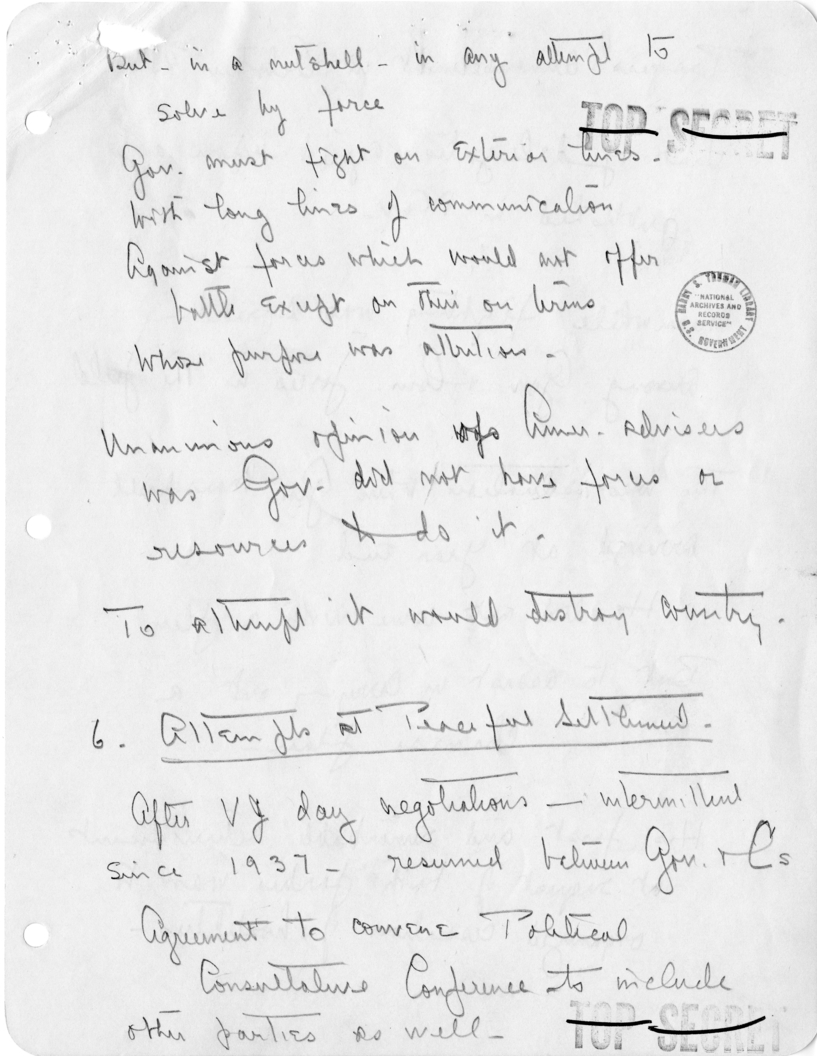 But - in a nutshell - in any attempt to
solve by force
TOP SECRET
Gov. must fight on Exterior lines -
With long lines of communication
Against forces which would not offer
battle Except on their on terms
Whose purpose was attrition -
HARRY S. TRUMAN LIBRARY
"NATIONAL
ARCHIVES AND
RECORDS
SERVICE"
U.S. GOVERNMENT
Unanimous opinion of Amer. advisers
was Gov. did not have forces or
resources to do it -
To attempt it would destroy country.
6. Attempts at Peaceful Settlement -
After VJ day negotiations — intermittent
since 1937 - resumed between Gov. + Cs
Agreement to convene Political
Consultative Conference - to include
other parties as well -
TOP SECRET